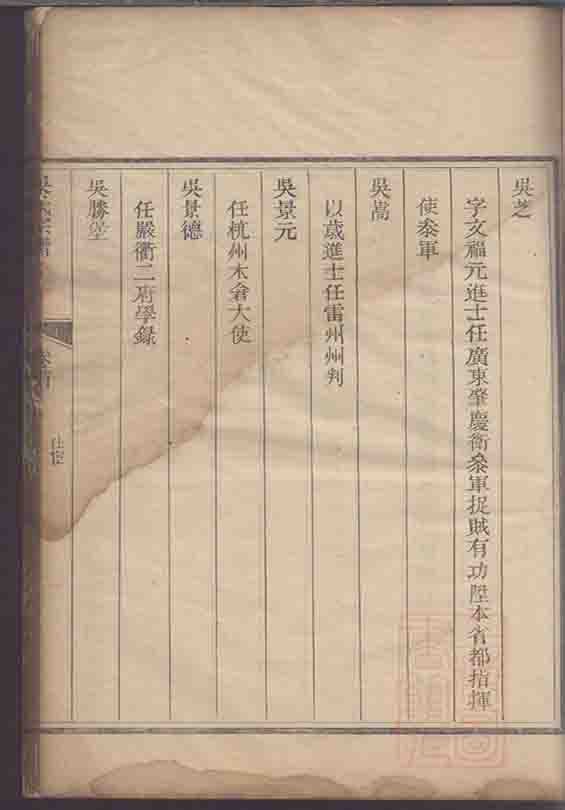 吳芝
字文福元進士任廣東肇慶衛叅軍捉賊有功陞本省都指揮
使叅軍
吳嵩
以歲進士任雷州州判
吳景元
任杭州木倉大使
吳景德
任嚴衢二府學録
吳勝堂
仕宦